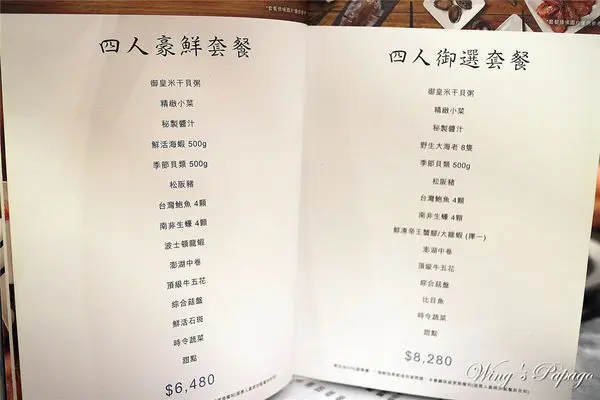 四人豪鮮套餐
御皇米干貝粥
精緻小菜
秘製醬汁
鮮活海蝦 500g
季節貝類 500g
松阪豬
台灣鮑魚 4顆
南非生蠔 4顆
波士頓龍蝦
澎湖中卷
頂級牛五花
綜合菇盤
鮮活石斑
時令蔬菜
甜點
$6,480
四人御選套餐
御皇米干貝粥
精緻小菜
秘製醬汁
野生大海老 8隻
季節貝類 500g
松阪豬
台灣鮑魚 4顆
南非生蠔 4顆
鮮凍帝王蟹腳/大龍蝦 (擇一)
澎湖中卷
頂級牛五花
綜合菇盤
比目魚
時令蔬菜
甜點
$8,280
Wing's Papago